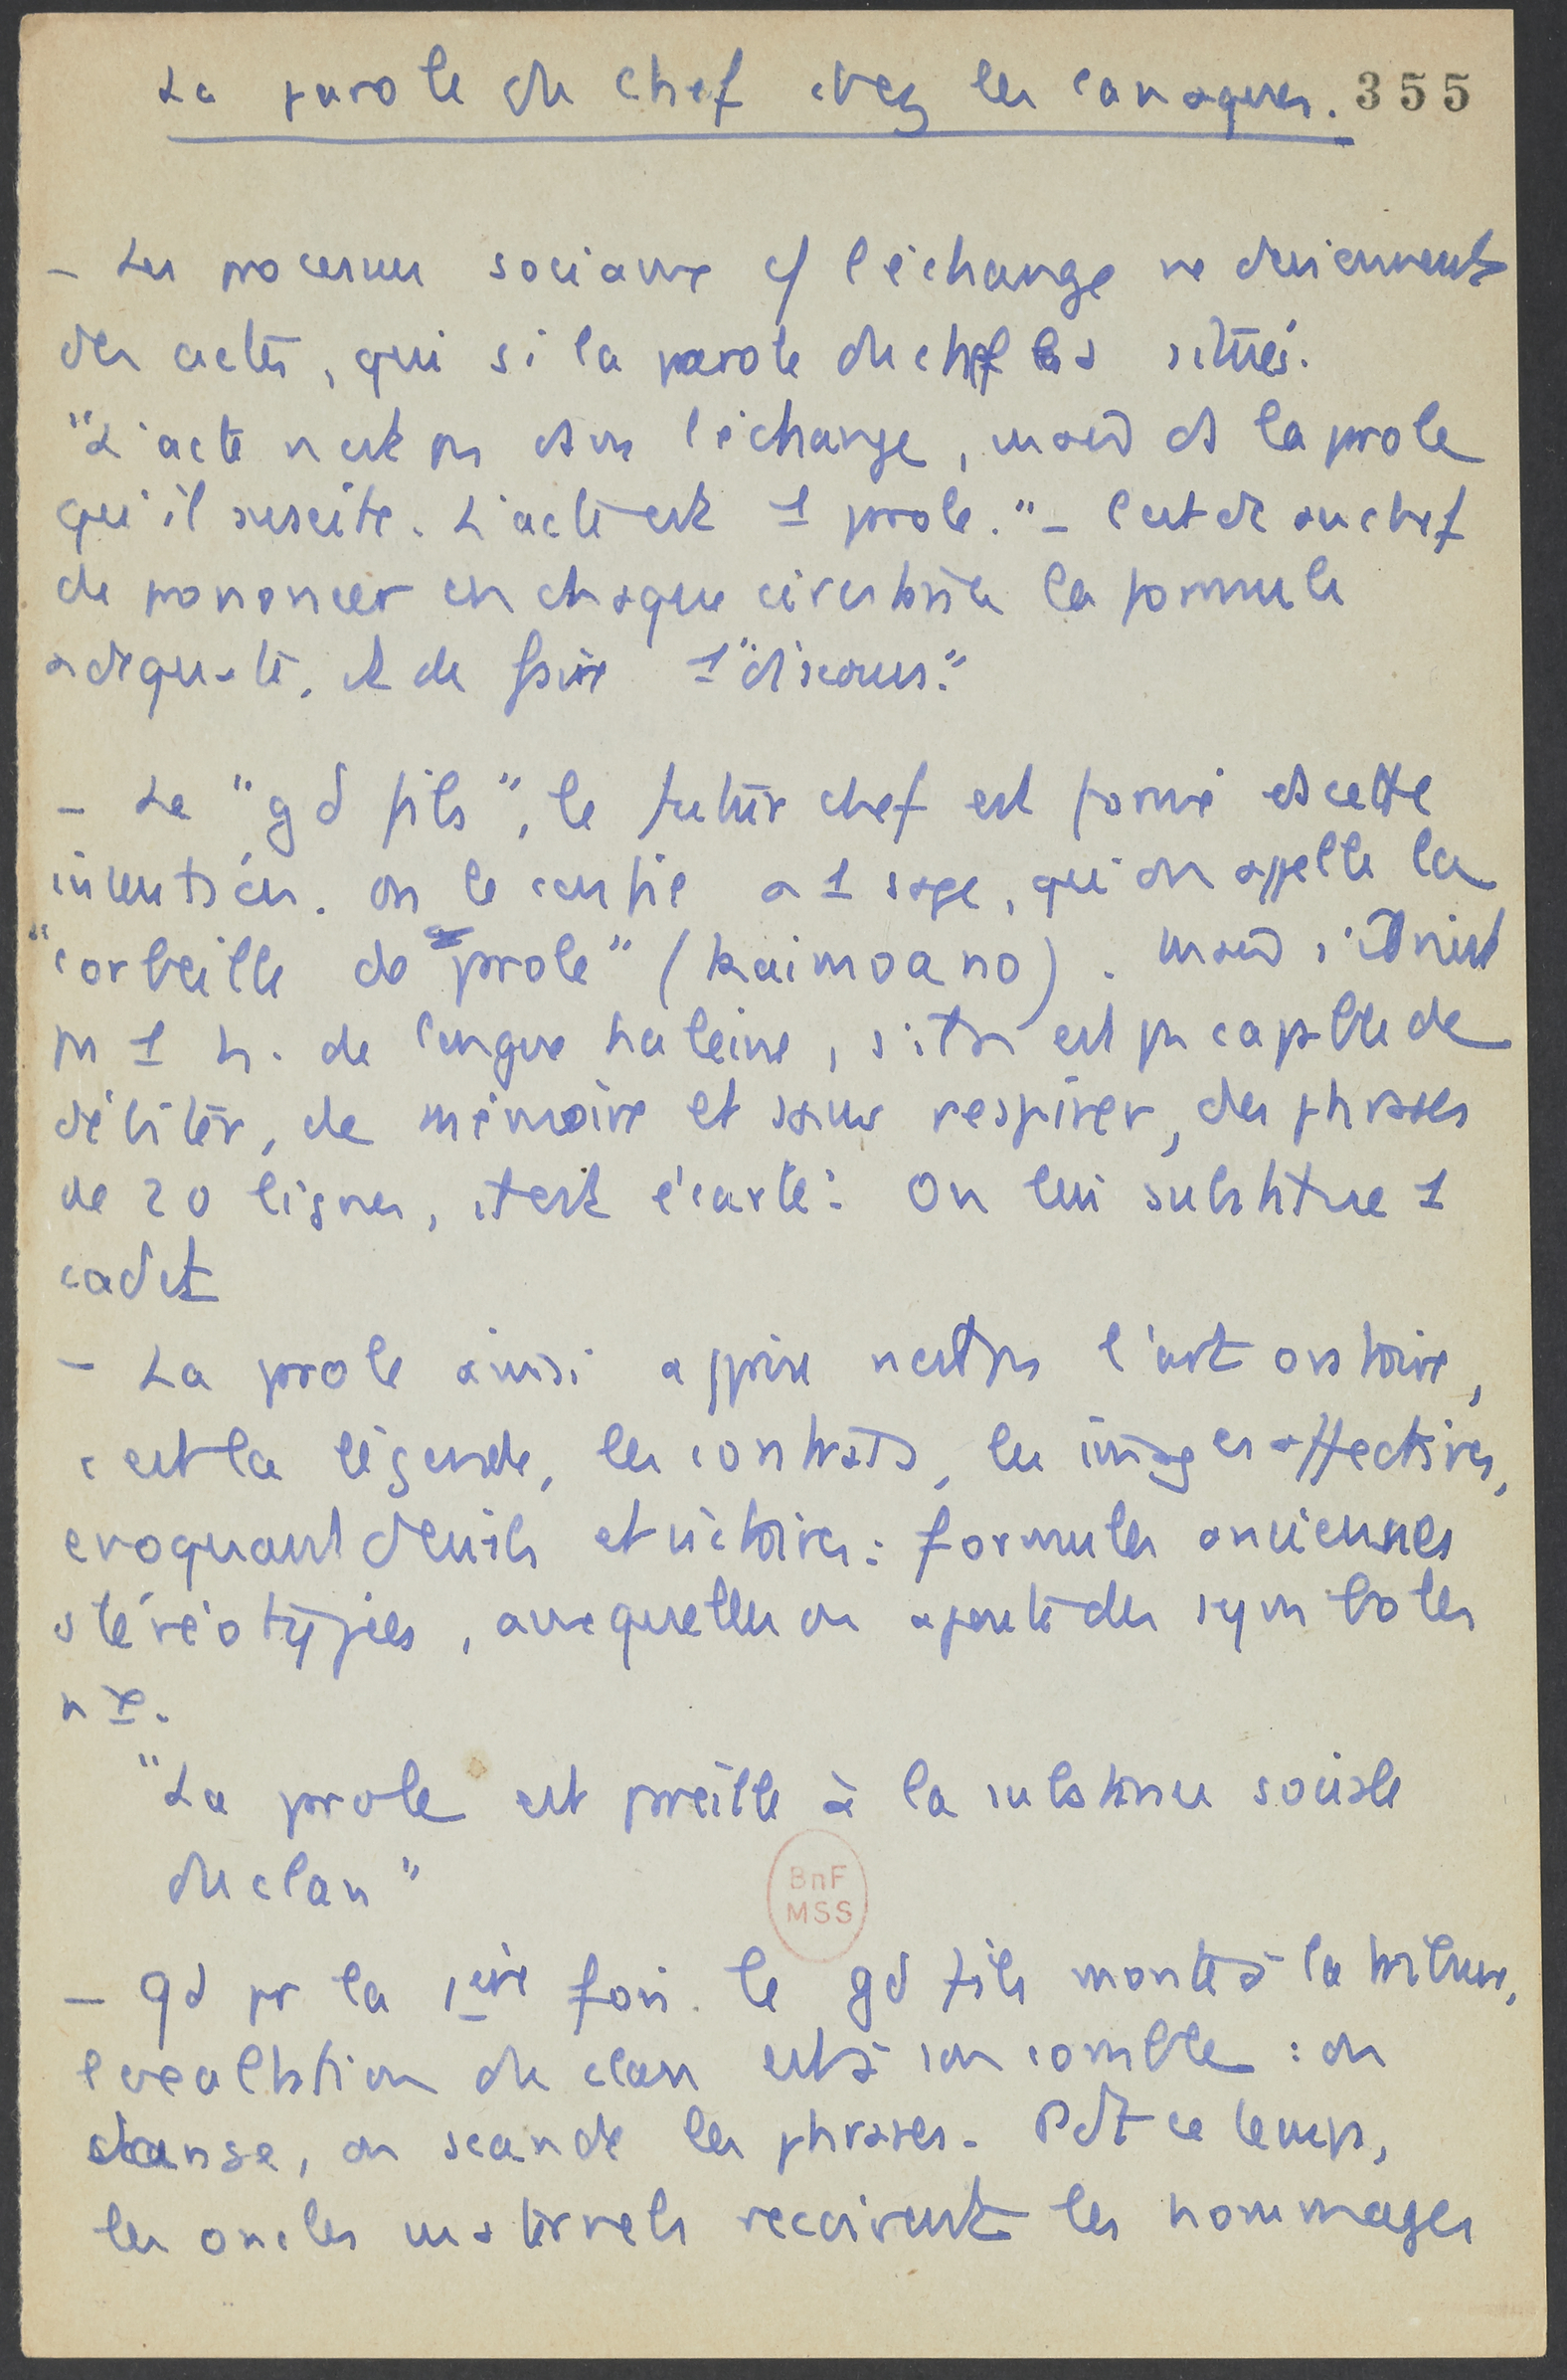 La parole du chef chez les canaques. 355
- Les processus sociaux c/ l'échange ne deviennent
des actes, que si la parole du chef les situés.
"L'acte n'est pas dans l'échange, mais ds la parole
qu'il suscite. L'acte est 1 parole." - C'est dc au chef
de prononcer en chaque circonstance la formule
adéquate, et de faire 1 "discours."
- Le "gd fils", le futur chef est formé ds cette
intention. On le confie a 1 sage, qu'on appelle la
"corbeille de parole" (kaimoano). Mais s'il n'est
pas 1 h. de longue haleine, s'il n'est pas capable de
débiter, de mémoire et sans respirer, des phrases
de 20 lignes, il est écarté : On lui substitue 1
cadet
- La parole ainsi apprise n'est pas l'art oratoire,
c'est la légende, les contrats, les images affectives,
evoquant deuils et victoires : formules anciennes
stéréotypées, auxquelles on ajoute des symboles
nx.
"La parole est pareille à la substance sociale
du clan"
BnF
MSS
- Qd pr la 1ère fois le gd fils monte à la tribune,
l'exaltation du clan est à son comble : on
danse, on scande les phrases. Pdt ce temps,
les oncles maternels reçoivent les hommages